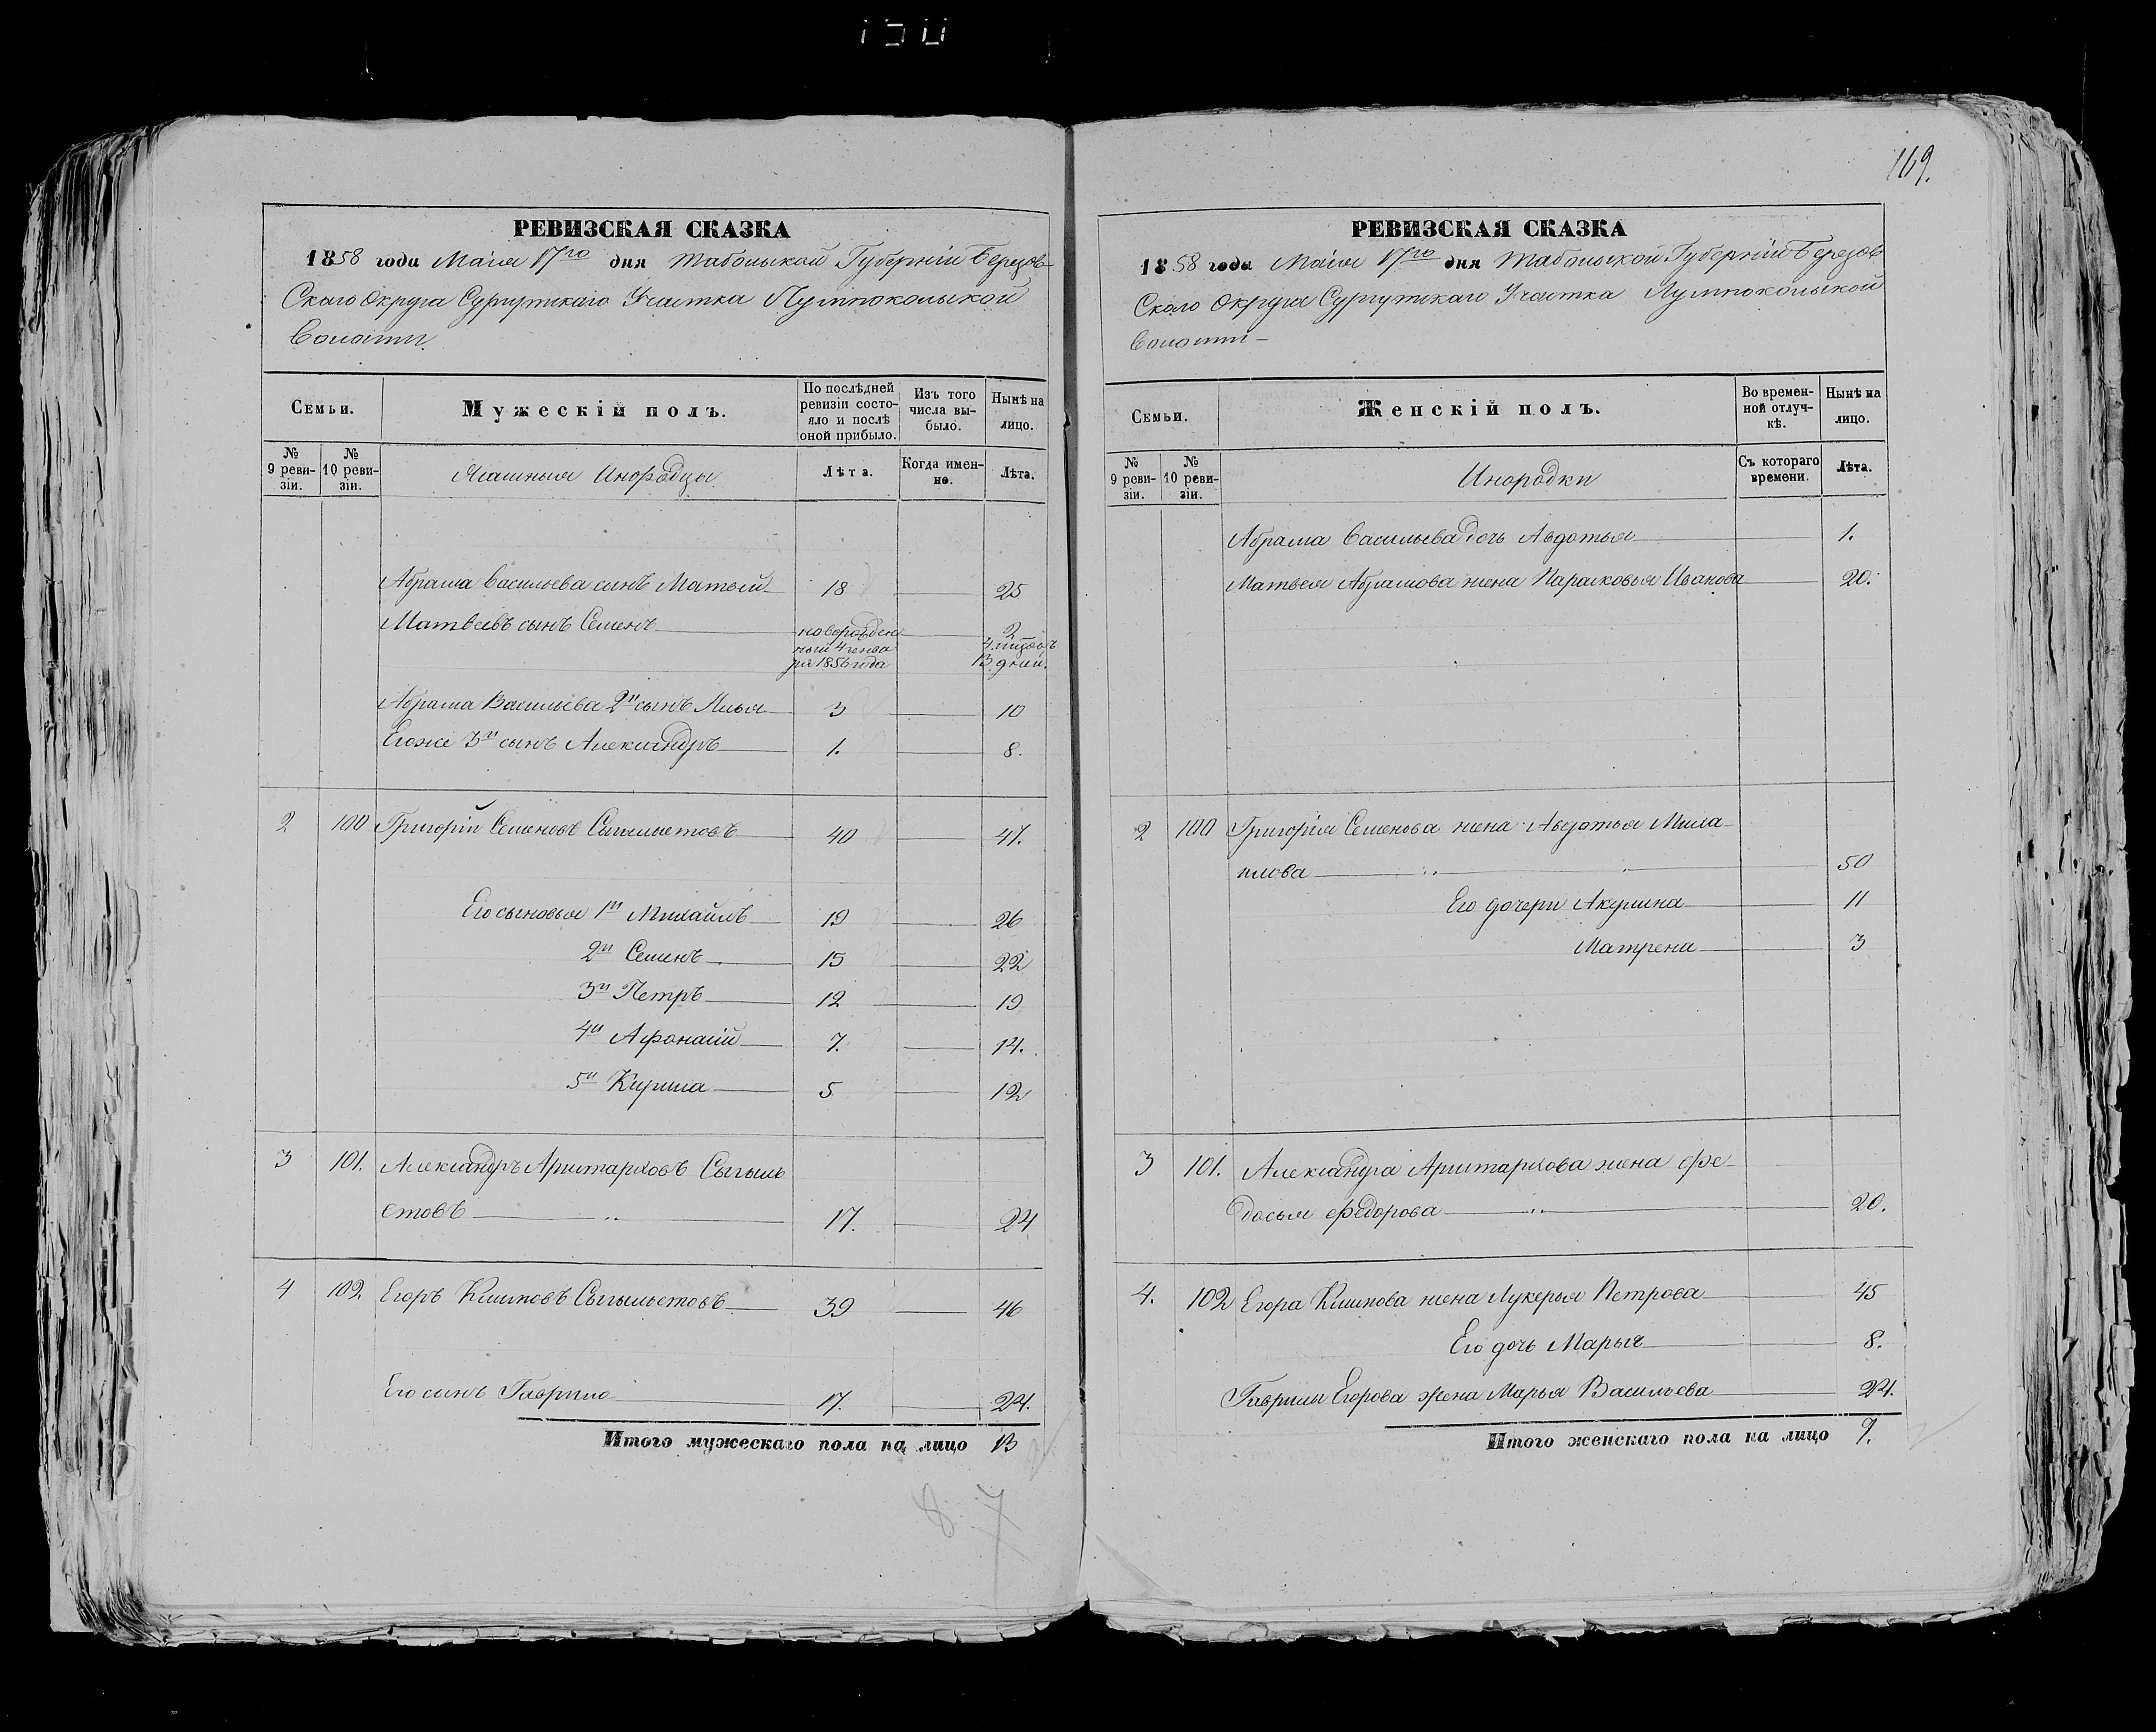 169.
РЕВИЗСКАЯ СКАЗКА
1858 года Маія 17го дня Табольской Губерніи Березов-
Скаго Округа Сургутскаго Участка Пумпокольской
Волости
Семьи.
Мужескій полъ.
По послѣдней ревизіи состояло и послѣ оной прибыло.
Изъ того числа выбыло.
Нынѣ на лицо.
№ 9 ревизіи.
№ 10 ревизіи.
Ясашныя Инородцы
Лѣта.
Когда именно.
Лѣта.
Абрама Васильева сынъ Матвей 18 25
Матвеевъ сынъ Семенъ новорожден 2
ный 4 генва 4 мѣсяцъ
ря 1856 года 13 дний.
Абрама Васильева 2й сынъ Илья 3 10
Егоже 3й сынъ Александръ 1. 8.
2 100 Григорій Семеновъ Сыгыльетовъ 40 47.
Его сыновья 1й Михайлъ 19 26
2й Семенъ 15 22
3й Петръ 12 19
4й Афонасій 7. 14.
5й Кирила 5 12
3 101. Александръ Ариштарховъ Сыгыль
етовъ 17. 24
4 102. Егоръ Климовъ Сыгыльетовъ 39 46
Его сынъ Гаврило 17. 24.
Итого мужескаго пола на лицо 13
8 7
РЕВИЗСКАЯ СКАЗКА
1858 года Маія 17го дня Табольской Губерніи Березов
Скаго Округа Сургутскаго Участка Пумпокольской
Волости
Семьи.
Женскій полъ.
Во временной отлучкѣ.
Нынѣ на лицо.
№ 9 ревизіи.
№ 10 ревизіи.
Инородки
Съ котораго времени.
Лѣта.
Абрама Васильева дочь Авдотья 1.
Матвея Абрамова жена Парасковья Иванова 20.
2 100 Григорія Семенова жена Авдотья
50
Его дочери Акулина 11
Матрена 3
3 101. Александра Ариштархова жена Фе-
досья Федорова 20.
4. 102 Егора Климова жена Лукерья Петрова 45
Его дочь Марья 8.
Гаврилы Егорова жена Марья Васильева 24.
Итого женскаго пола на лицо 9.